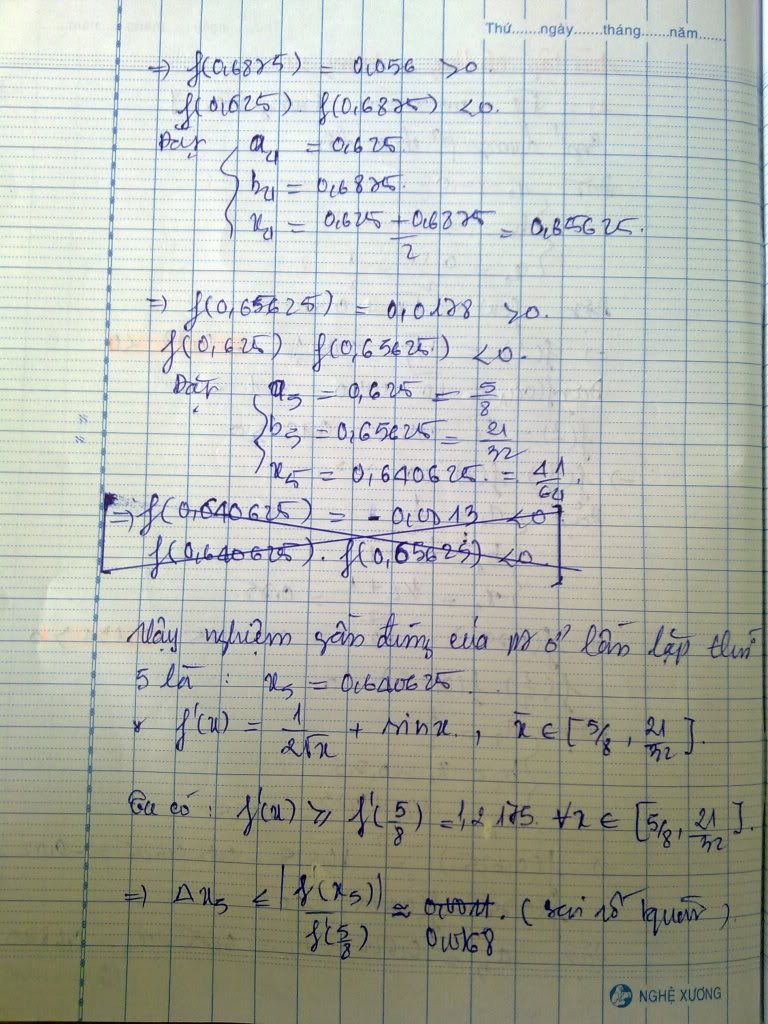 Thứ.......ngày.......tháng.......năm.......
=> f(0,6875) = 0,056 >0.
f(0,625) . f(0,6875) <0.
Đặt { a4 = 0,625
b4 = 0,6875.
x4 = (0,625 + 0,6875)/2 = 0,65625.
=> f(0,65625) = 0,0178 >0.
f(0,625) f(0,65625) <0.
Đặt { a5 = 0,625 = 5/8
b5 = 0,65625 = 21/32
x5 = 0,640625. = 41/64.
=> f(0,640625) = - 0,0013 <0
f(0,640625) . f(0,65625) <0
Vậy nghiệm gần đúng của pt ở lần lặp thứ
5 là : x5 = 0,640625.
* f'(x) = 1/(2√x) + sinx. , x ∈ [5/8 , 21/32].
Ta có : f'(x) ≥ f'(5/8) = 1,2175. ∀x ∈ [5/8, 21/32].
=> Δx5 ≤ |f(x5)|/f'(5/8) ≈ (sai số quát)
0,0168
NGHỆ XƯƠNG